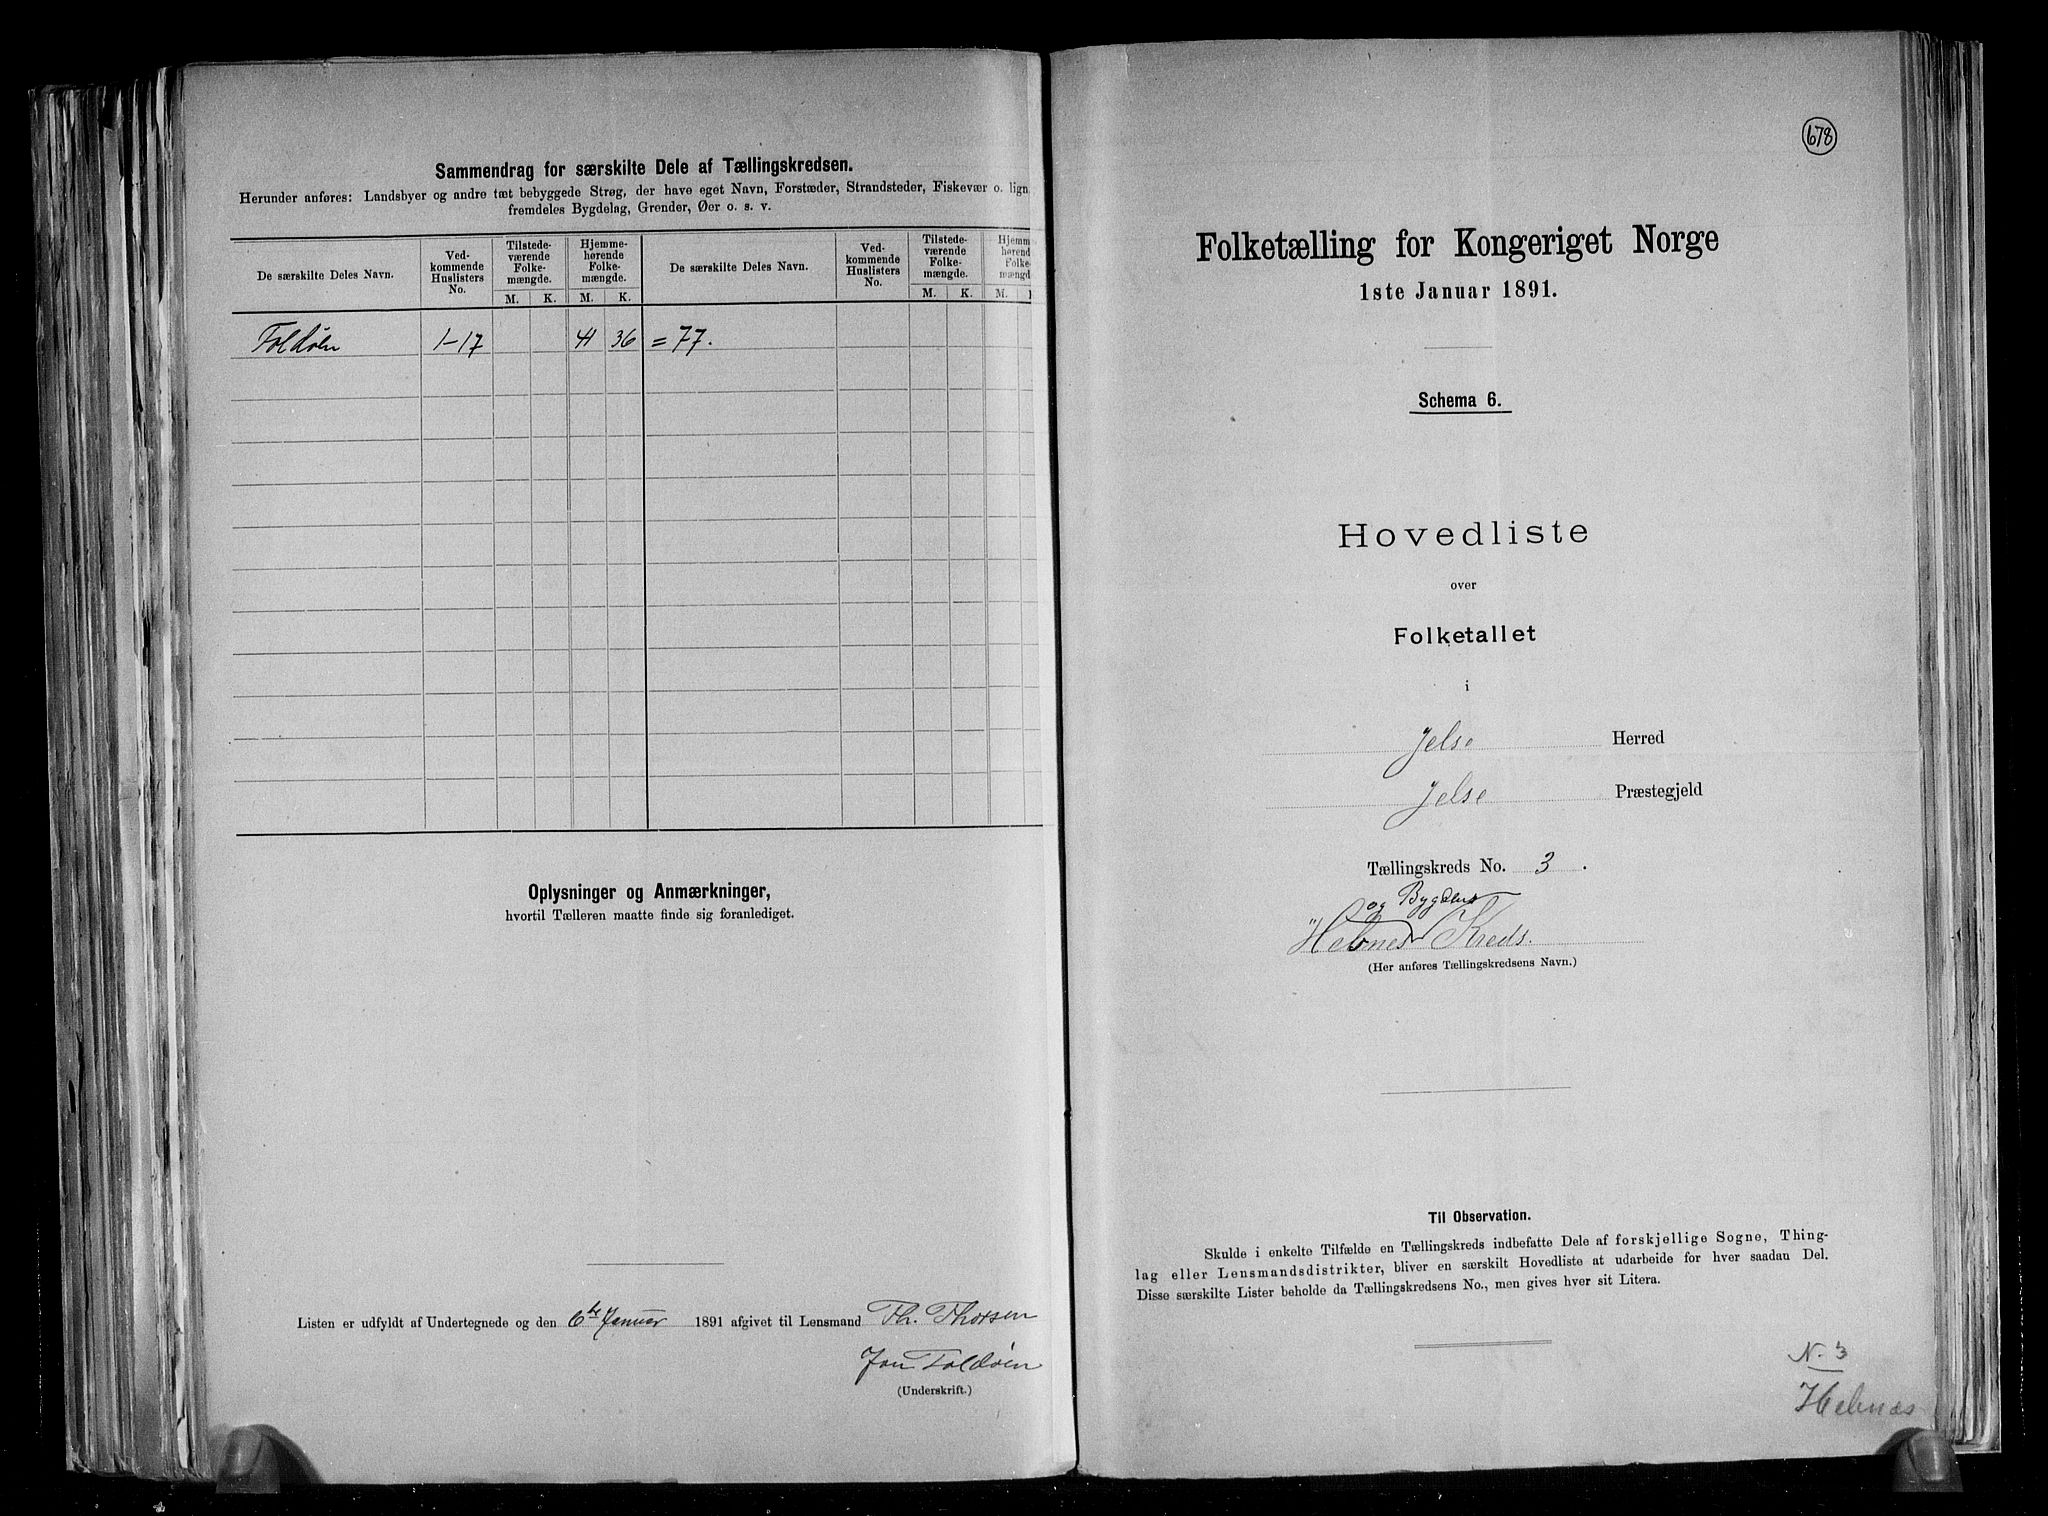 Sammendrag for særskilte Dele af Tællingskredsen.
Herunder anføres: Landsbyer og andre tæt bebyggede Strøg, der have eget Navn, Forstæder, Strandsteder, Fiskevær o. lign.
fremdeles Bygdelag, Grender, Øer o. s. v.
De særskilte Deles Navn. Ved-kommende Huslisters No. Tilstede-værende Folke-mængde. Hjemme-hørende Folke-mængde. De særskilte Deles Navn. Ved-kommende Huslisters No. Tilstede-værende Folke-mængde. Hjemm hørend Folke- mængd
M. K. M. K. M. K. M.
Foldöen 1-17 41 36 = 77.
Oplysninger og Anmærkninger,
hvortil Tælleren maatte finde sig foranlediget.
Listen er udfyldt af Undertegnede og den 6te Januar 1891 afgivet til Lensmand Th. Thorsen
Jon Foldöen
(Underskrift.)
678
Folketælling for Kongeriget Norge
1ste Januar 1891.
Schema 6.
Hovedliste
over
Folketallet
i
Jelse Herred
Jelse Præstegjeld
Tællingskreds No. 3.
og Bygdens
"Hebnes Kreds.
(Her anføres Tællingskredsens Navn.)
Til Observation.
Skulde i enkelte Tilfælde en Tællingskreds indbefatte Dele af forskjellige Sogne, Thing-
lag eller Lensmandsdistrikter, bliver en særskilt Hovedliste at udarbeide for hver saadan Del.
Disse særskilte Lister beholde da Tællingskredsens No., men gives hver sit Litera.
N. 3
Hebnæs